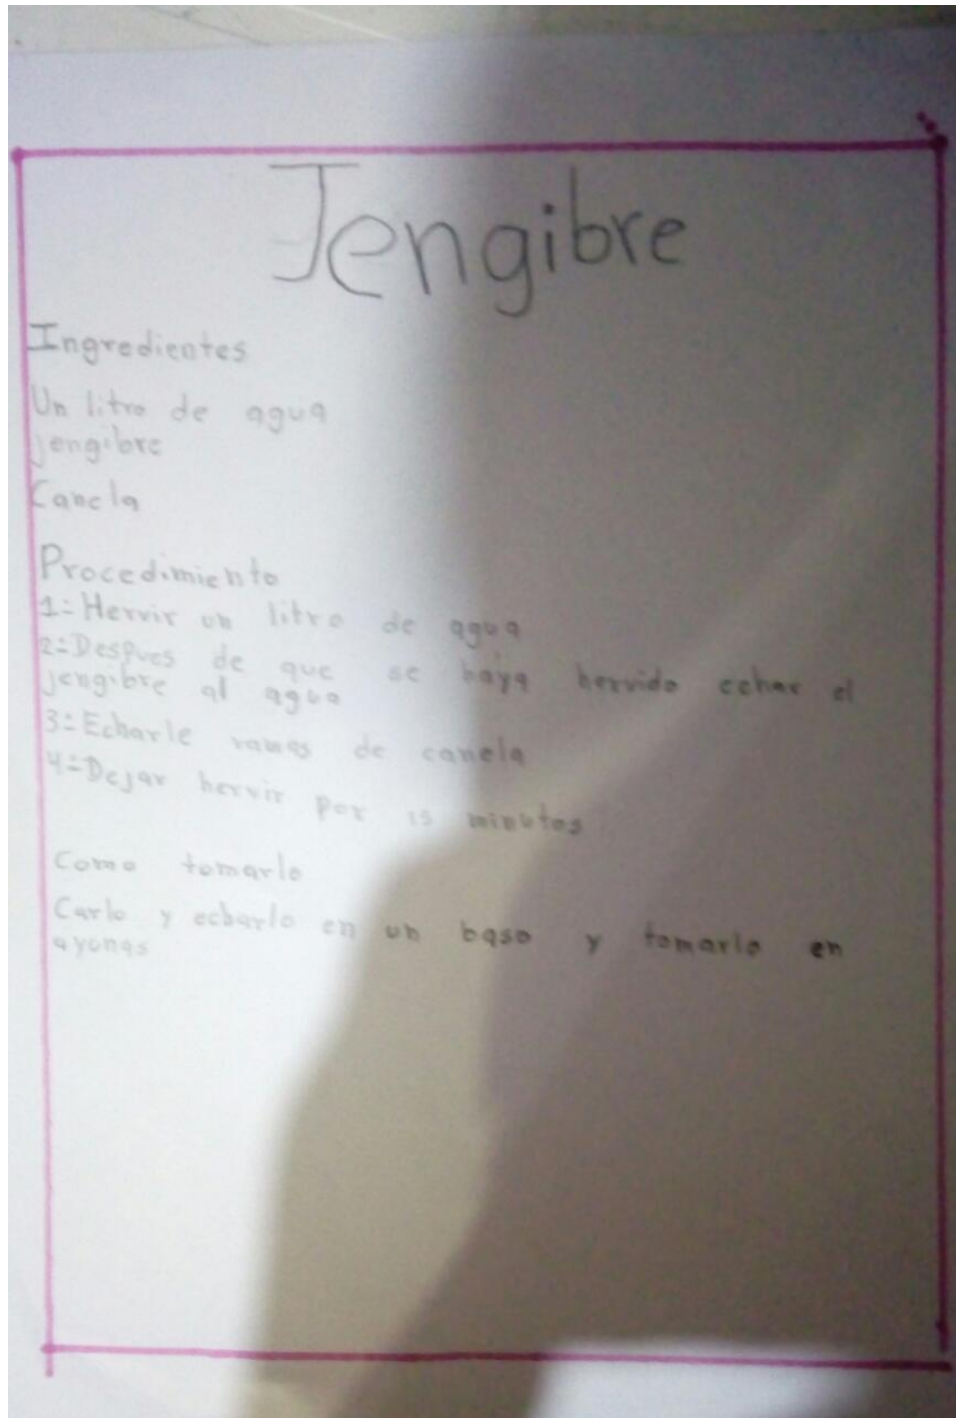 Jengibre
Ingredientes
Un litro de agua
jengibre
Canela
Procedimiento
1=Hervir un litro de agua
2=Despues de que se baya hervido echar el
jengibre al agua
3=Echarle ramas de canela
4=Dejar hervir por 15 minutos
Como tomarlo
Carlo y echarlo en un baso y tomarlo en
ayunas